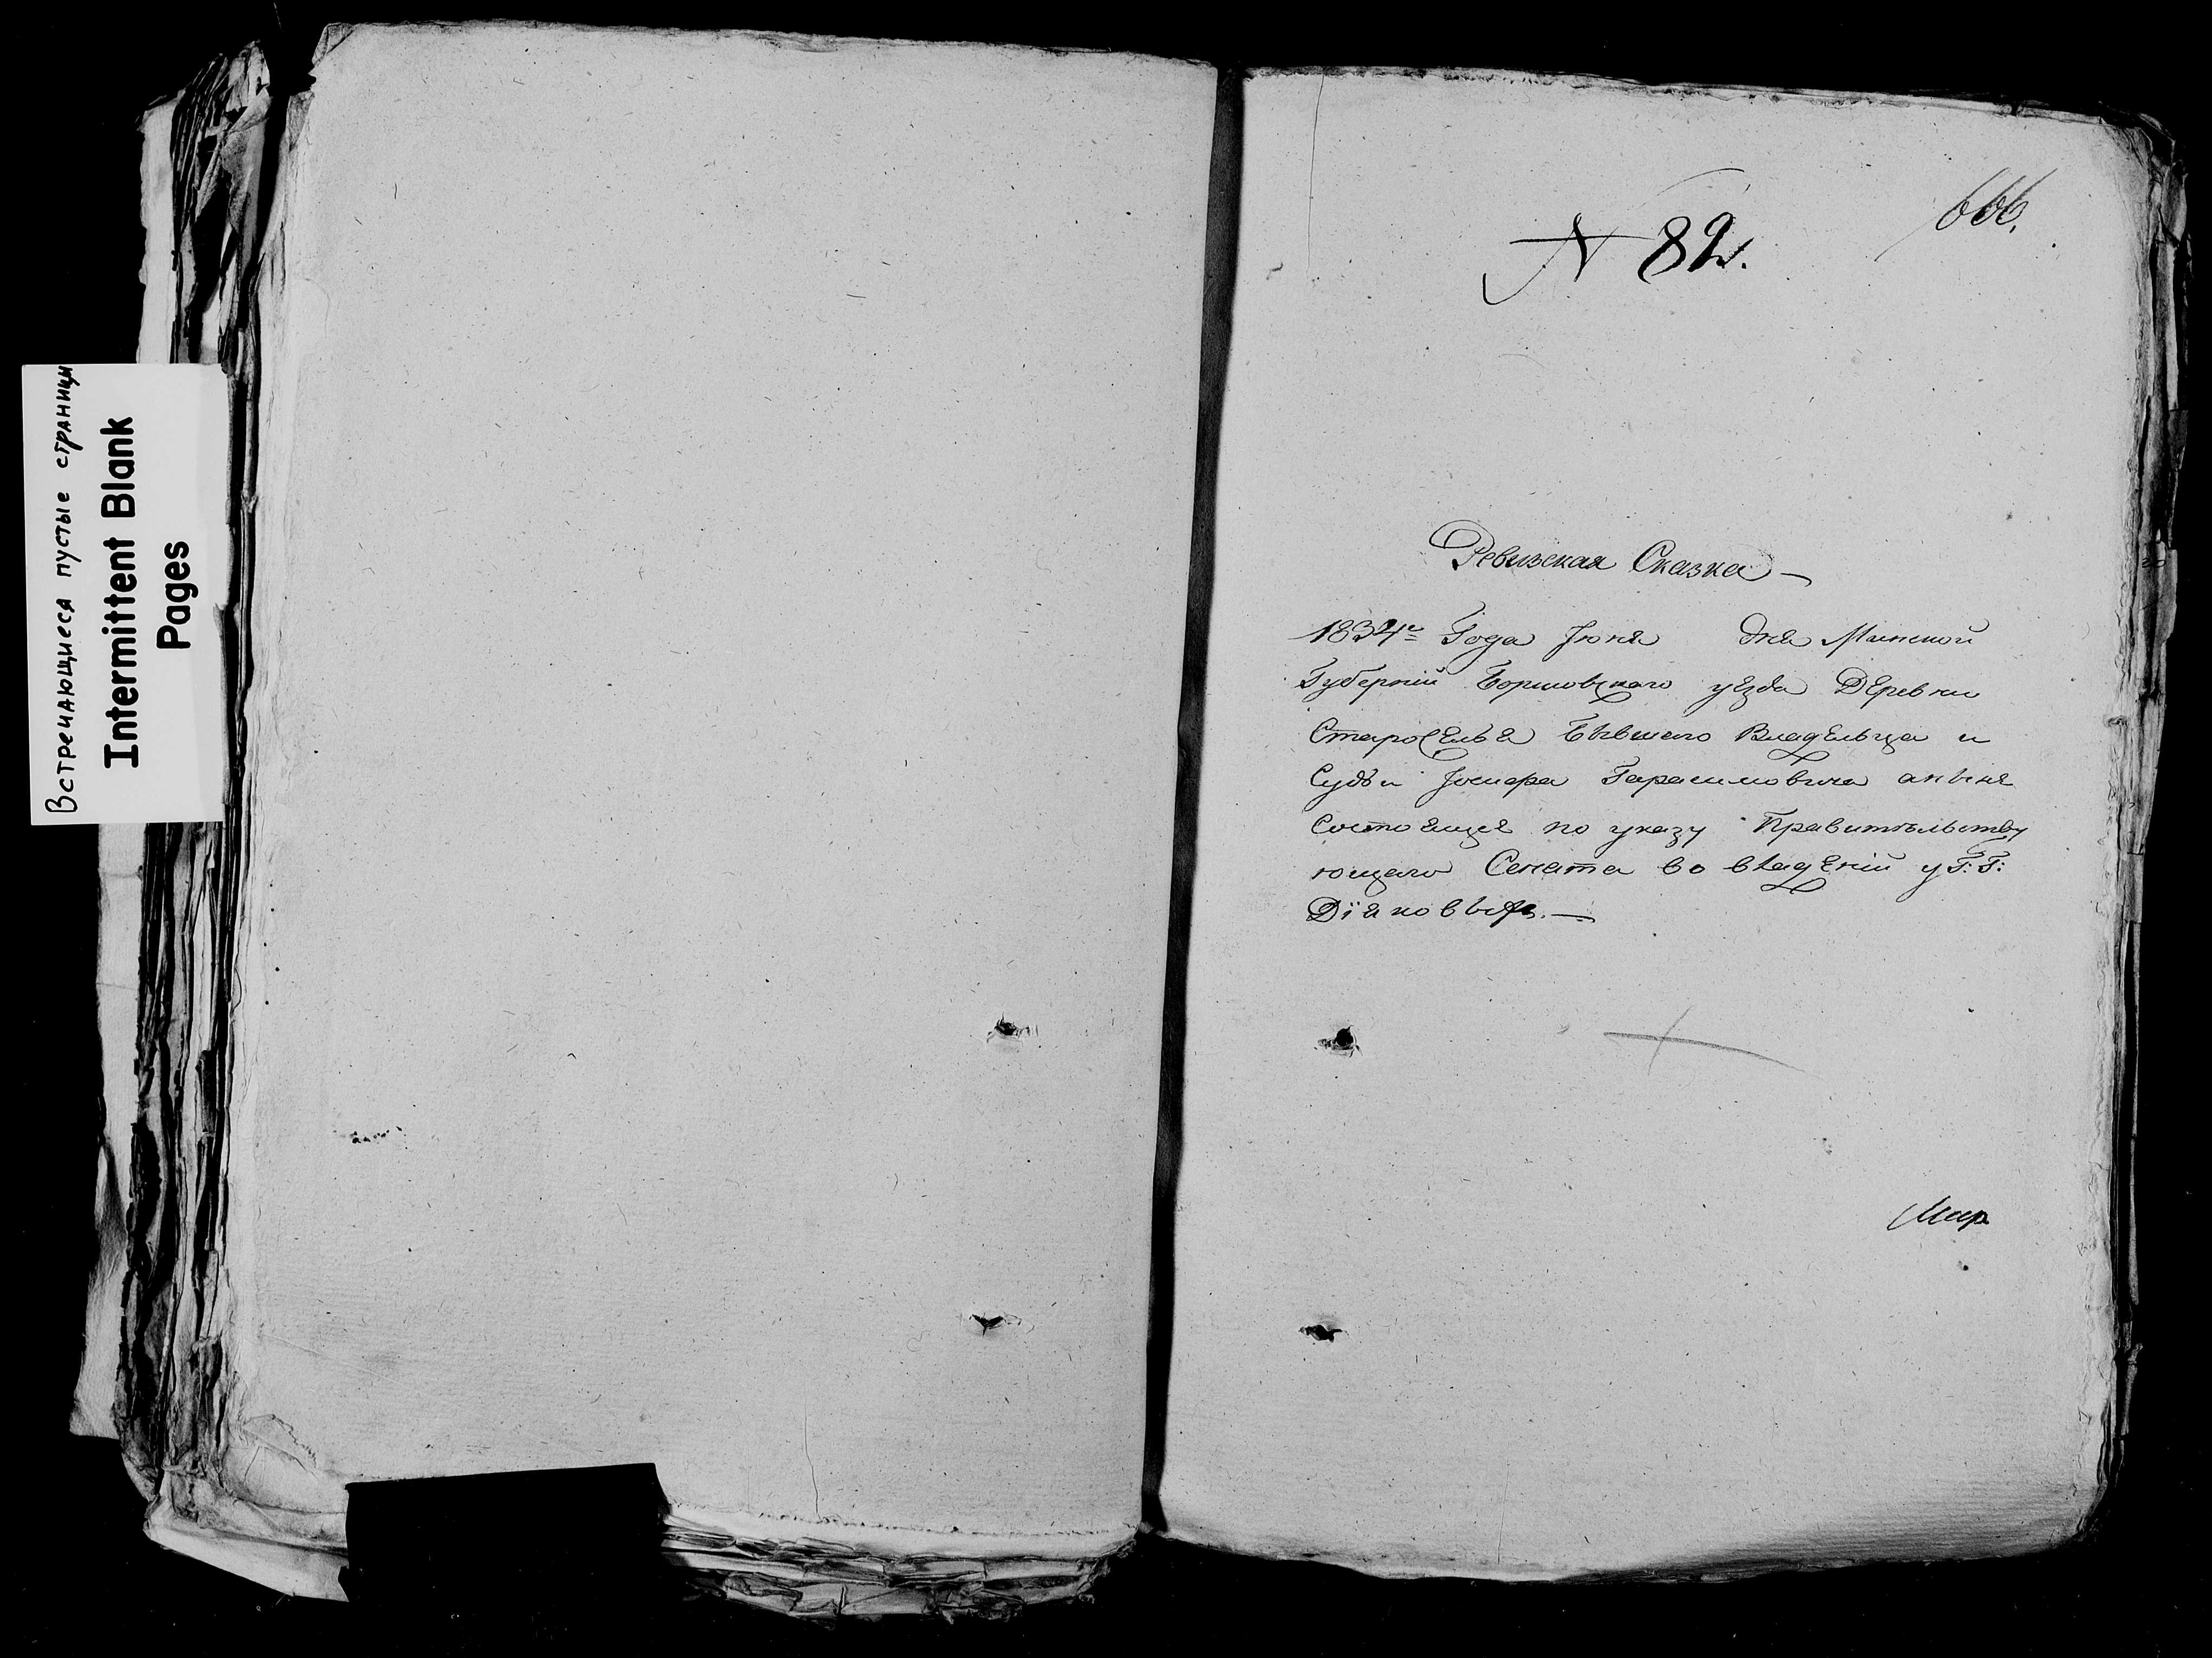 Встречающиеся пустые страницы
Intermittent Blank
Pages
666.
N 82.
Ревизская Сказка —
1834го Года Июня дня Минской
Губерніи Борисовскаго уезда Деревни
Староселья бывшего Владельца и
Судьи Іосифа Гарасимовича аныне
Состоящее по указу Правительству
ющаго Сената во владеніи у Г: Г:
Діаковых. —